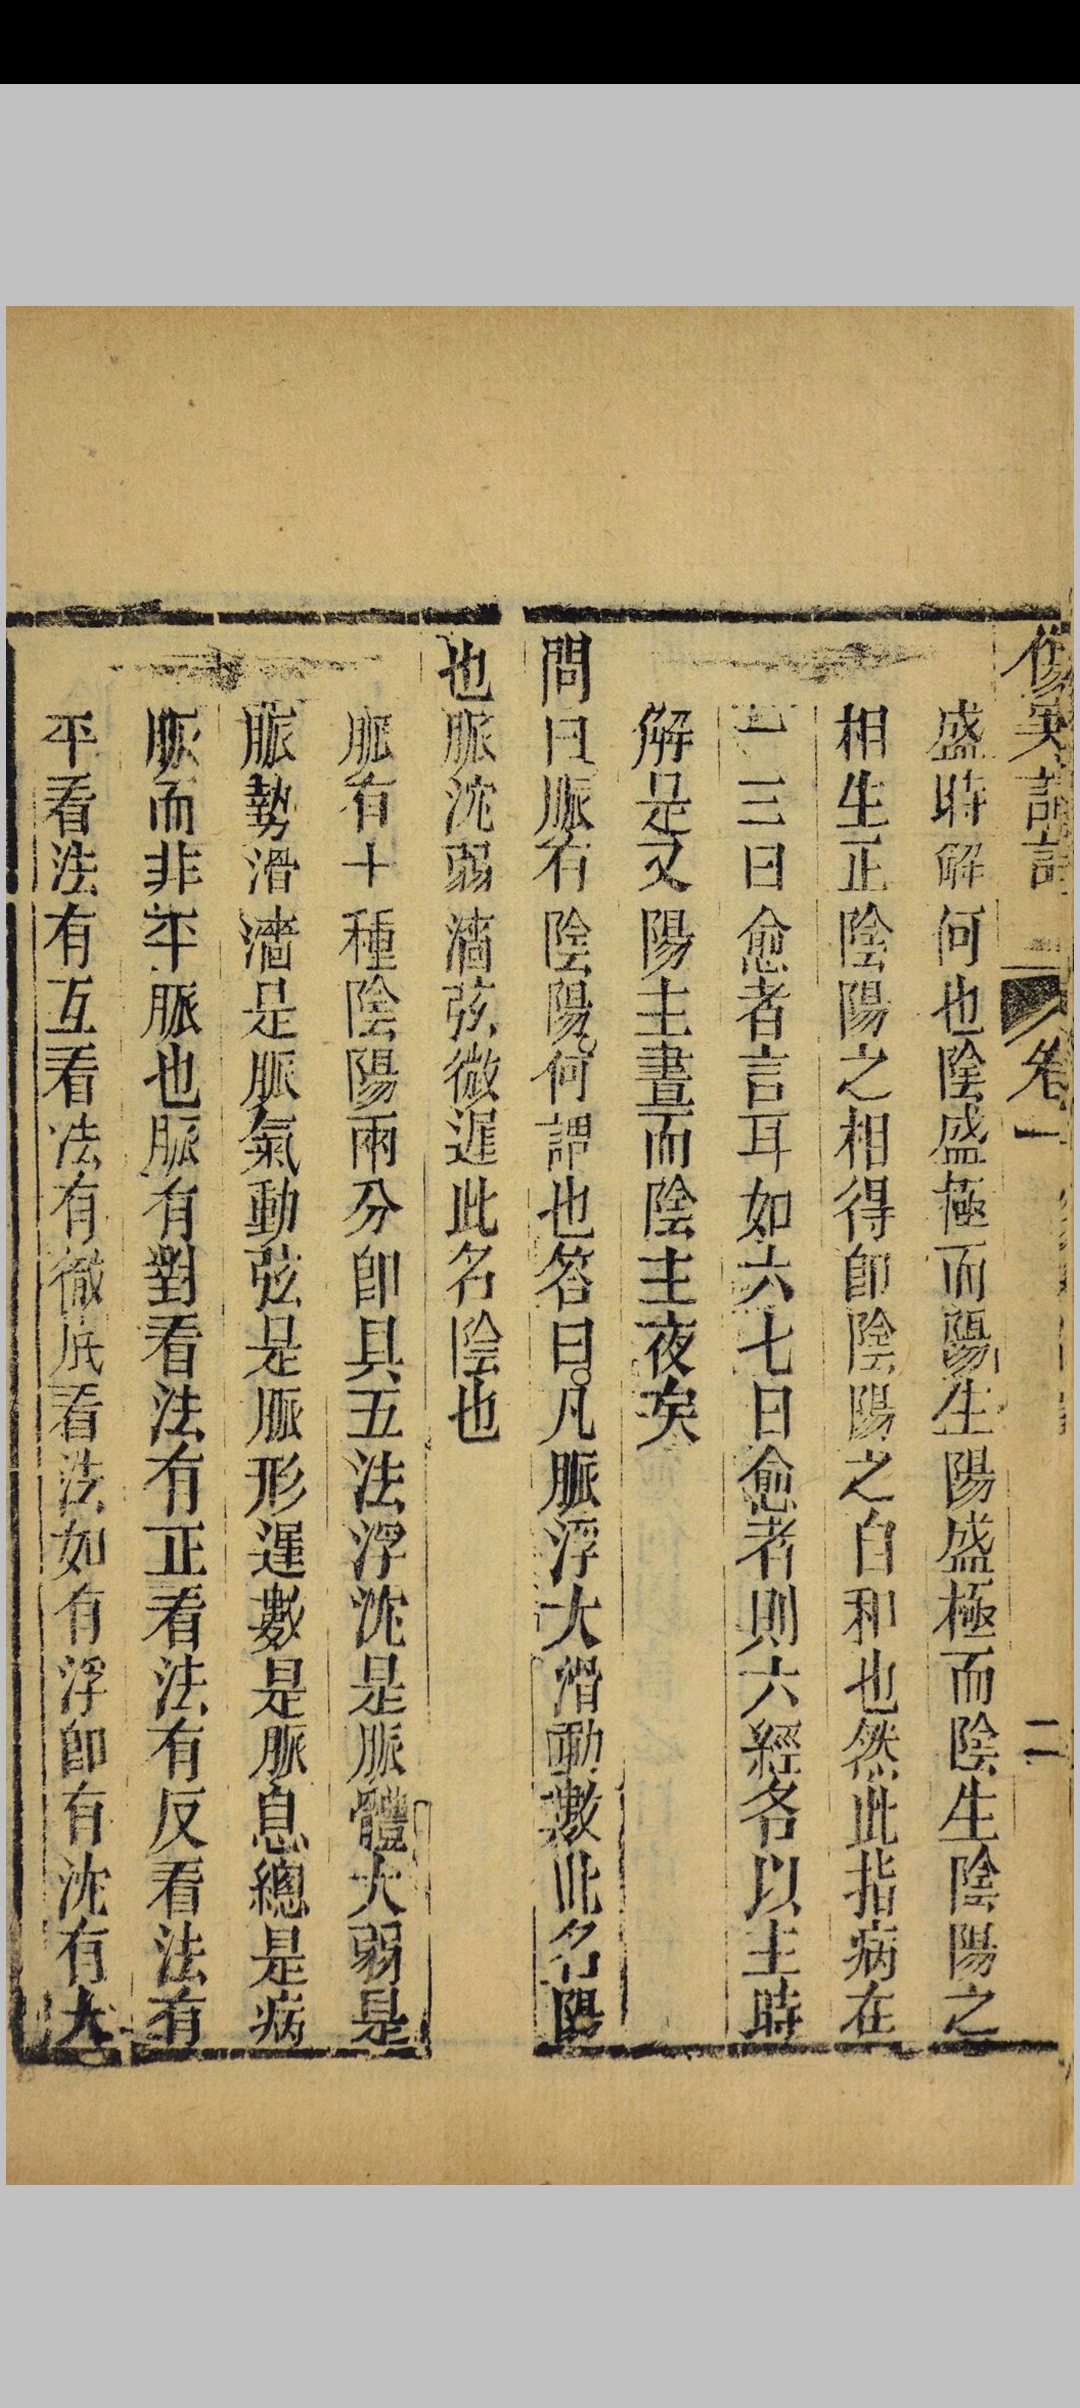 卷一 二
盛時解何也陰盛極而陽生陽盛極而陰生陰陽之
相生正陰陽之相得卽陰陽之自和也然此指病在
三日愈者言耳如六七日愈者則六經各以主時
解是又陽主晝而陰主夜矣
問曰脈有陰陽何謂也答曰凡脈浮大滑動數此名陽
也脈沈弱濇弦微遲此名陰也
脈有十種陰陽兩分卽具五法浮沈是脈體大弱是
脈勢滑濇是脈氣動弦是脈形遲數是脈息總是病
脈而非平脈也脈有對看法有正看法有反看法有
平看法有互看法有徹底看法如有浮卽有沈有大